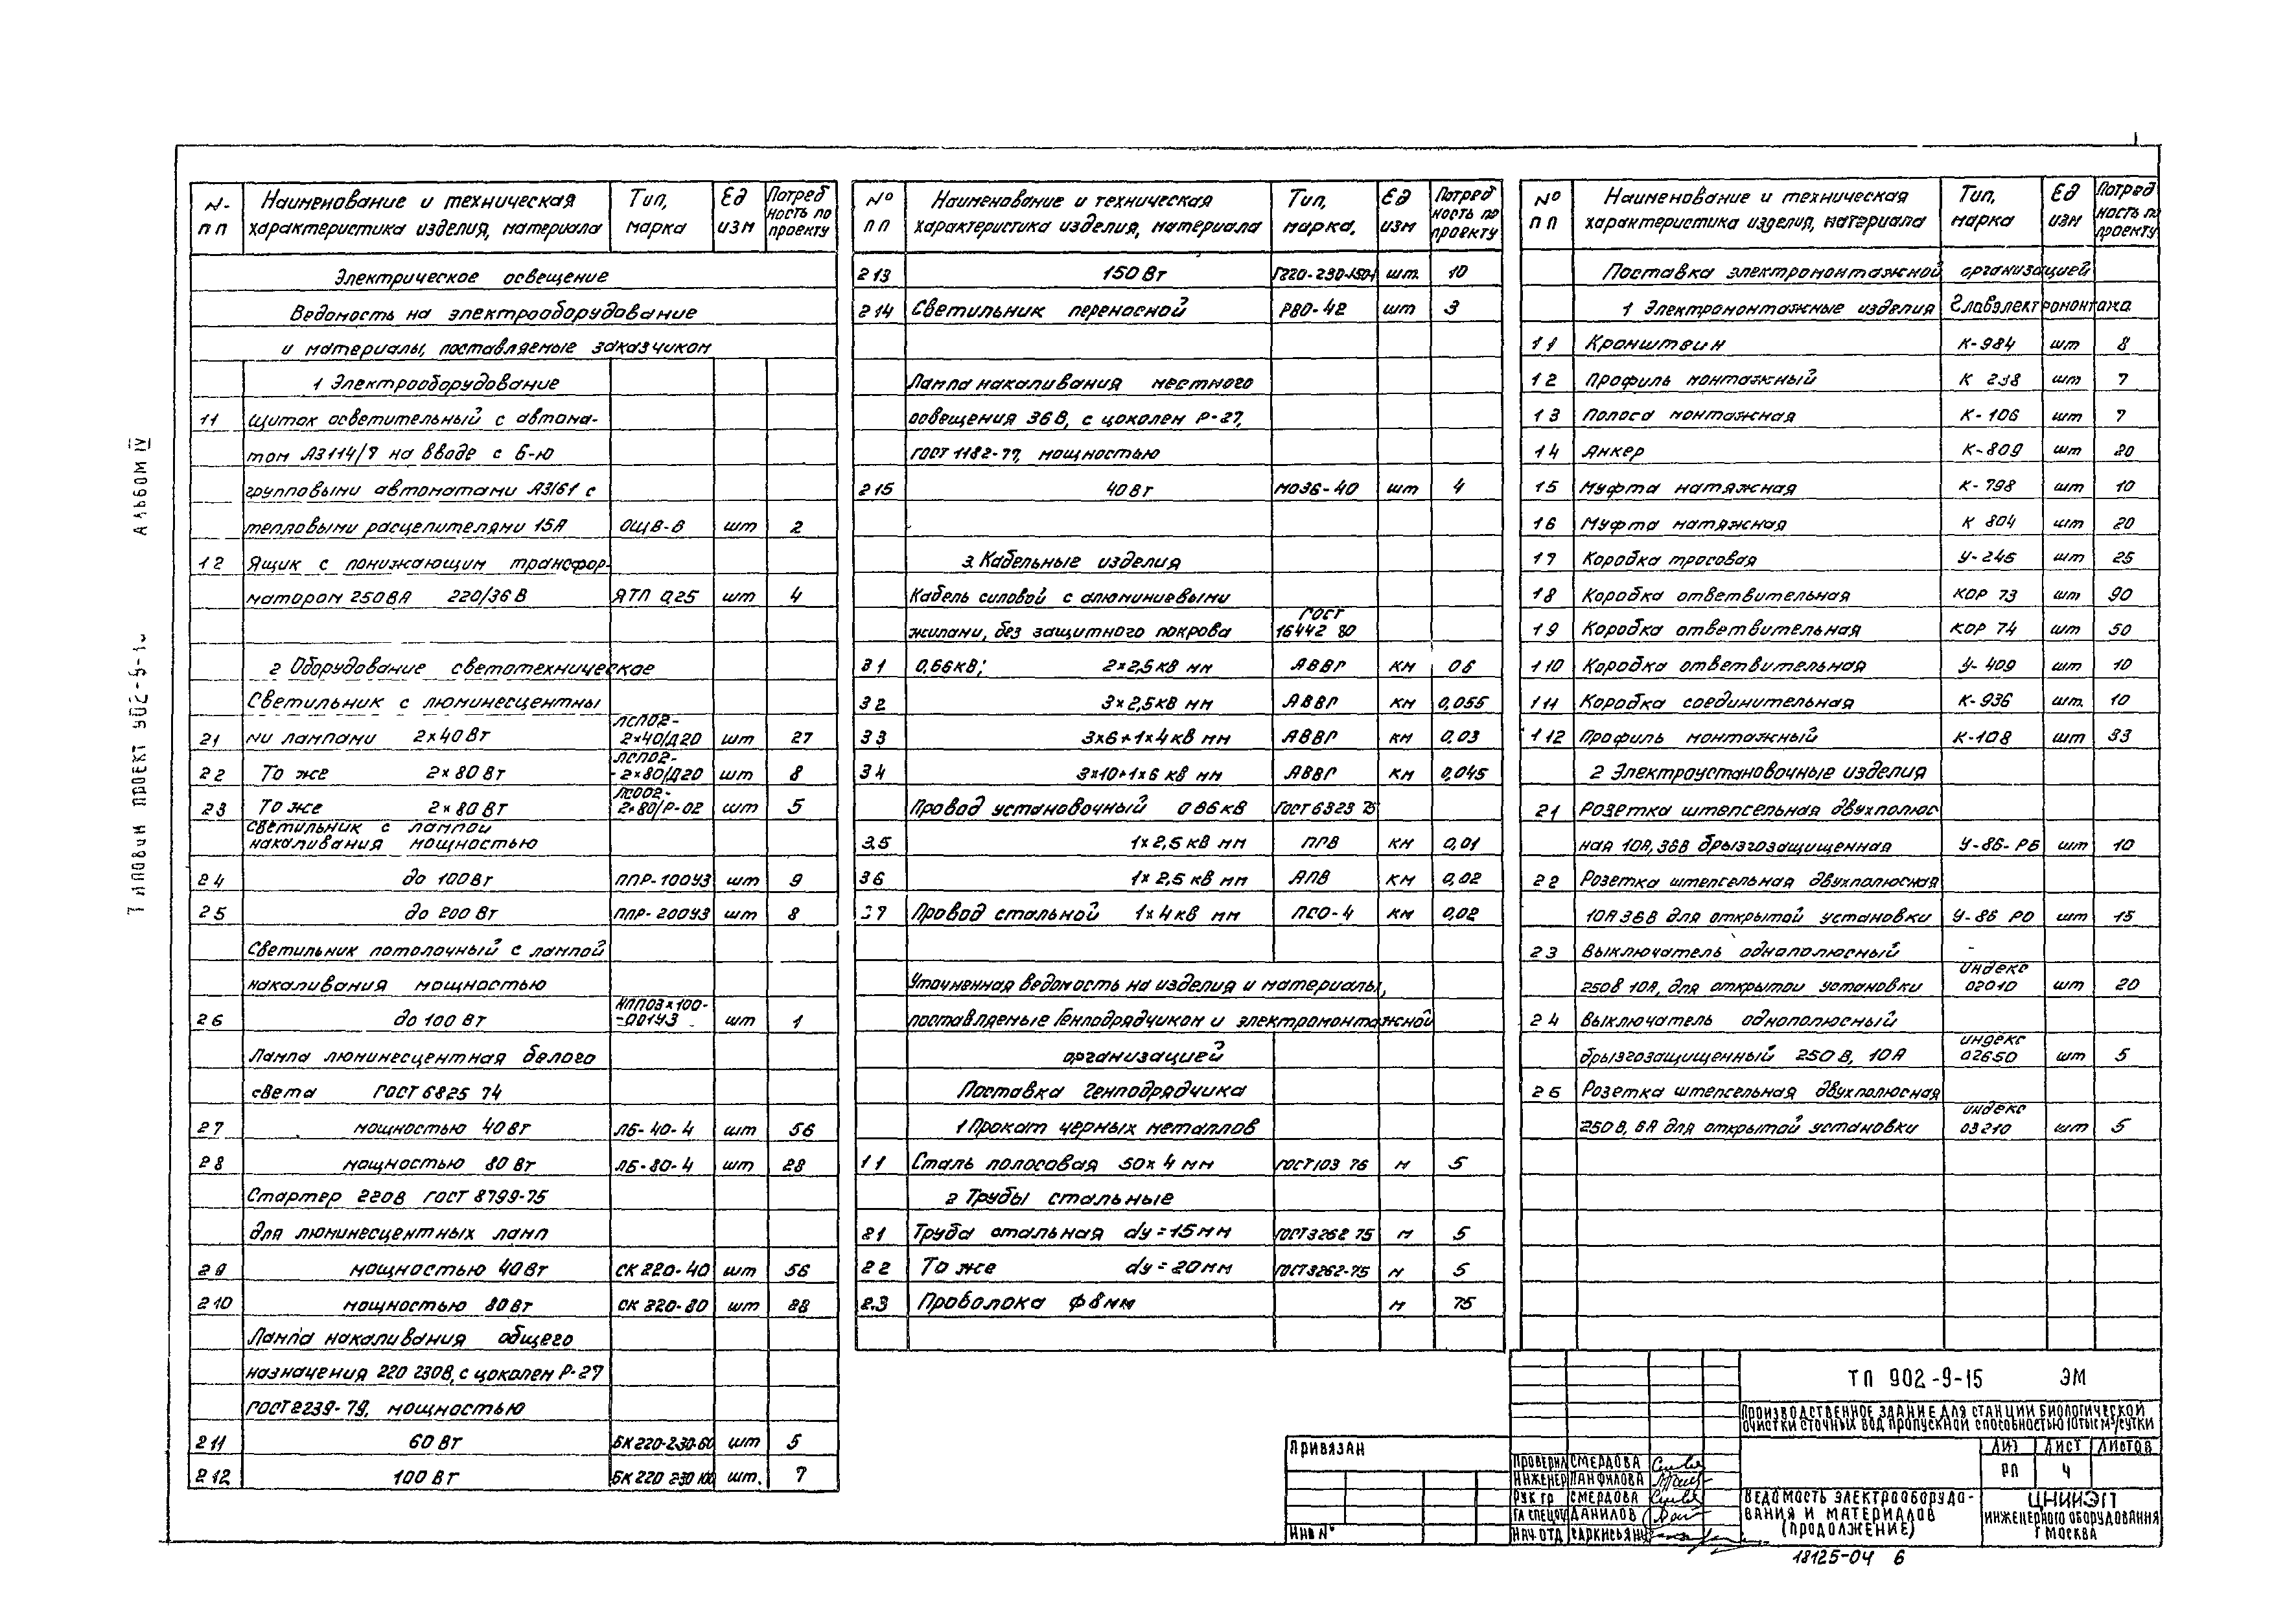 АЛЬБОМ IV
№ пп Наименование и техническая характеристика изделия, материала Тип, марка Ед изм Потребность по проекту
Электрическое освещение
Ведомость на электрооборудование
и материалы, поставляемые заказчиком
1 Электрооборудование
11 Щиток осветительный с автома-
том А3114/7 на вводе с 6-ю
групповыми автоматами А3161 с
тепловыми расцепителями 15А ОЩВ-6 шт 2
12 Ящик с понижающим трансфор-
матором 250ВА 220/36 В ЯТП 0,25 шт 4
2 Оборудование светотехническое
Светильник с люминесцентны
ЛСП02-
21 ми лампами 2х40 Вт 2х40/Д20 шт 27
ЛСП02-
22 То же 2х80 Вт -2х80/Д20 шт 8
ЛСО02-
23 То же 2х80 Вт 2х80/Р-02 шт 5
Светильник с лампой
накаливания мощностью
24 до 100 Вт ППР-100У3 шт 9
25 до 200 Вт ППР-200У3 шт 8
Светильник потолочный с лампой
накаливания мощностью
НПП03х100-
26 до 100 Вт -001У3 шт 1
Лампа люминесцентная белого
света ГОСТ 6825 74
27 мощностью 40 Вт ЛБ-40-4 шт 56
28 мощностью 80 Вт ЛБ-80-4 шт 28
Стартер 220В ГОСТ 8799-75
для люминесцентных ламп
29 мощностью 40 Вт СК 220-40 шт 56
210 мощностью 80 Вт СК 220-80 шт 28
Лампа накаливания общего
назначения 220 230В, с цоколем Р-27
ГОСТ 2239-79, мощностью
211 60 Вт БК 220-230-60 шт 5
212 100 Вт БК 220 230 100 шт. 7
№ пп Наименование и техническая характеристика изделия, материала Тип, марка, Ед изм Потребность по проекту
213 150 Вт Г220-230-150-1 шт. 10
214 Светильник переносной РВО-42 шт 3
Лампа накаливания местного
освещения 36В, с цоколем Р-27,
ГОСТ 1182-77, мощностью
215 40 Вт МО36-40 шт 4
3. Кабельные изделия
Кабель силовой с алюминиевыми
ГОСТ
жилами, без защитного покрова 16442 80
31 0,66кВ; 2х2,5 кв мм АВВГ км 06
32 3х2,5 кв мм АВВГ км 0,055
33 3х6+1х4 кв мм АВВГ км 0,03
34 3х10+1х6 кв мм АВВГ км 0,045
Провод установочный 0 66 кВ ГОСТ 6323 75
3.5 1х2,5 кв мм ПРВ км 0,01
36 1х2,5 кв мм АПВ км 0,02
37 Провод стальной 1х4 кв мм ПСО-4 км 0,02
Уточненная ведомость на изделия и материалы,
поставляемые Генподрядчиком и электромонтажной
организацией
Поставка Генподрядчика
1 Прокат черных металлов
11 Сталь полосовая 50х4 мм ГОСТ 103 76 м 5
2 Трубы стальные
21 Труба стальная dу=15мм ГОСТ 3262 75 м 5
22 То же dу=20мм ГОСТ 3262-75 м 5
2.3 Проволока ф8мм м 75
№ пп Наименование и техническая характеристика изделия, материала Тип, марка Ед изм Потребность по проекту
Поставка электромонтажной организацией
1 Электромонтажные изделия Главэлектромонтажа
11 Кронштейн К-984 шт 8
12 Профиль монтажный К 238 шт 7
13 Полоса монтажная К-106 шт 7
14 Анкер К-809 шт 20
15 Муфта натяжная К-798 шт 10
16 Муфта натяжная К 804 шт 20
17 Коробка тросовая У-245 шт 25
18 Коробка ответвительная КОР 73 шт 90
19 Коробка ответвительная КОР 74 шт 50
110 Коробка ответвительная У-409 шт 10
111 Коробка соединительная К-936 шт. 10
112 Профиль монтажный К-108 шт 33
2 Электроустановочные изделия
21 Розетка штепсельная двухполюс
ная 10А, 36В брызгозащищенная У-86-РБ шт 10
22 Розетка штепсельная двухполюсная
10А 36В для открытой установки У-86 РО шт 15
23 Выключатель однополюсный
индекс
250В 10А, для открытой установки 02010 шт 20
24 Выключатель однополюсный
индекс
брызгозащищенный 250 В, 10 А 02650 шт 5
25 Розетка штепсельная двухполюсная
индекс
250 В, 6А для открытой установки 03210 шт 5
ТП 902-9-15 ЭМ
ПРОИЗВОДСТВЕННОЕ ЗДАНИЕ ДЛЯ СТАНЦИИ БИОЛОГИЧЕСКОЙ
ОЧИСТКИ СТОЧНЫХ ВОД ПРОПУСКНОЙ СПОСОБНОСТЬЮ 10 ТЫС М³/СУТКИ
ЛИТ ЛИСТ ЛИСТОВ
РП 4
ПРИВЯЗАН
ИНВ №
ПРОВЕРИЛ СМЕРДОВА
ИНЖЕНЕР ПАНФИЛОВА
РУК ГР СМЕРДОВА
ГЛ СПЕЦОТ ДАНИЛОВ
НАЧ ОТД САРКИСЬЯНЦ
ВЕДОМОСТЬ ЭЛЕКТРООБОРУДО-
ВАНИЯ И МАТЕРИАЛОВ
(ПРОДОЛЖЕНИЕ)
ЦНИИЭП
ИНЖЕНЕРНОГО ОБОРУДОВАНИЯ
Г МОСКВА
18125-04 6